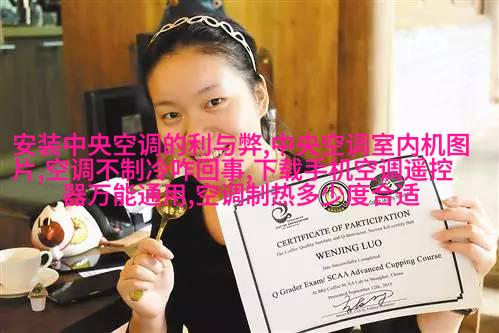 安装中央空调的利与弊,中央空调室内机图
片,空调不制冷咋回事,下载手机空调遥控
器万能通用,空调制热多少度合适
CERTIFICATE OF PARTICIPATION
Coffee Quality Institute and Q-Instructor, Steven Kil certify that
WENJING LUO
Has Successfully Completed
Q Grader Exam/ SCAA Advanced Cupping Course
At MQ Coffee SCAA Lab in Shanghai, China
Presented September 12th, 2015